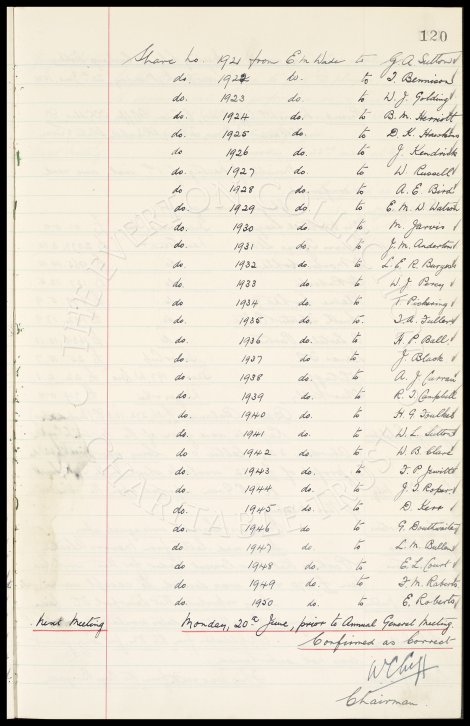 120
Share No. 1921 from E M Wade to G A Sutton
do. 1922 do. to T. Bennison
do. 1923 do. to W. J. Golding
do. 1924 do. to B. M. Herriott
do. 1925 do. to D. K. Hawkins
do. 1926 do. to J. Kendrick
do. 1927 do. to W. Russell
do. 1928 do. to A. E. Bird
do. 1929 do. to E. M. D Watson
do. 1930 do. to M. Jarvis
do. 1931 do. to J. M. Anderton
do. 1932 do. to L. E. R. Burgess
do. 1933 do. to W. J. Percy
do. 1934 do. to T. Pickering
do. 1935 do. to T. A. Fuller
do. 1936 do. to H. P. Ball
do. 1937 do. to J. Black
do. 1938 do. to A. J. Curran
do. 1939 do. to R. T. Campbell
do. 1940 do. to H. G. Foulkes
do. 1941 do. to W. L. Sutton
do. 1942 do. to W. B. Clare
do. 1943 do. to F. P. Jewitt
do. 1944 do. to J. T. Roper
do. 1945 do. to D. Kerr
do. 1946 do. to G. Douthwaite
do. 1947 do. to L. M. Buller
do. 1948 do. to E. L. Court
do. 1949 do. to F. M. Roberts
do. 1950 do. to E. Roberts
Next Meeting Monday, 20th June, prior to Annual General Meeting.
Confirmed as Correct
W C Cuff
Chairman.
THE EVERTON COLLECTION
CHARITABLE TRUST